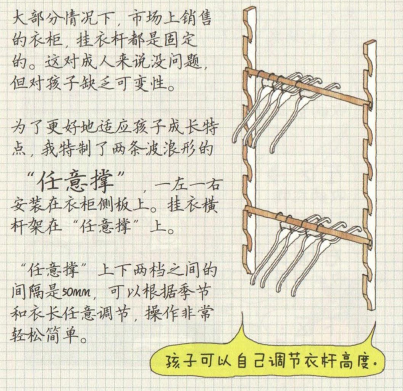 大部分情况下，市场上销售
的衣柜，挂衣杆都是固定
的。这对成人来说没问题，
但对孩子缺乏可变性。
为了更好地适应孩子成长特
点，我特制了两条波浪形的
“任意撑”，一左一右
安装在衣柜侧板上。挂衣横
杆架在“任意撑”上。
“任意撑”上下两档之间的
间隔是50mm，可以根据季节
和衣长任意调节，操作非常
轻松简单。
孩子可以自己调节衣杆高度.